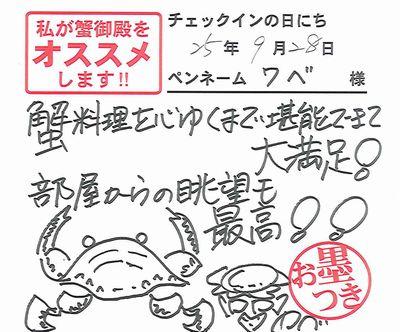 私が蟹御殿を
オススメ
します!!
チェックインの日にち
25年9月28日
ペンネーム ワベ 様
蟹料理を心ゆくまで堪能できて
大満足!
部屋からの眺望も
最高!!
お墨
つき